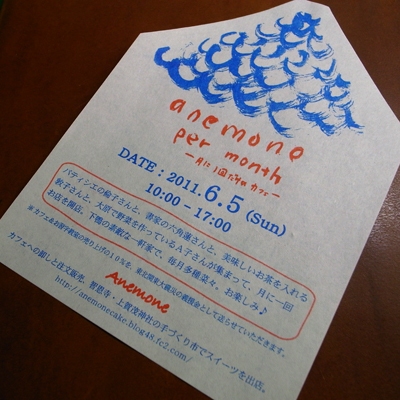 anemone
per month
ー月に1回だけのカフェー
DATE : 2011.6.5 (Sun)
10:00 – 17:00
パティシエの倫子さんと、書家の六角蓮さんと、美味しいお茶を入れる
敦子さんと、大原で野菜を作っているA子さんが集まって、月に一回
お店を開店。下鴨の素敵な一軒家で、毎月多種菜々、お楽しみ♪
※カフェ&お習字教室の売り上げの10%を、東北関東大震災の義援金として送らせていただきます。
Anemone
カフェへの卸しと注文販売、智恩寺・上賀茂神社の手づくり市でスイーツを出店。
http://anemonecake.blog48.fc2.com/